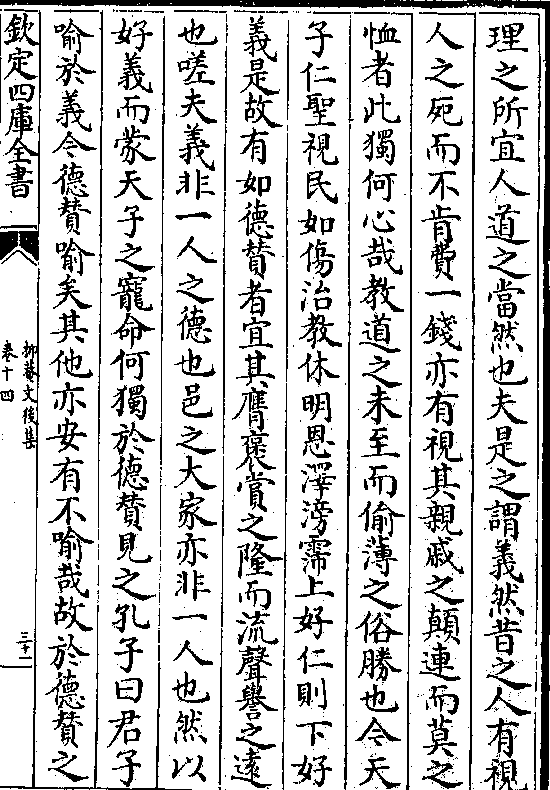 理之所宜人道之當然也夫是之謂義然昔之人有視
人之死而不肯費一錢亦有視其親戚之顛連而莫之
恤者此獨何心哉教道之未至而偷薄之俗勝也今天
子仁聖視民如傷治教休明恩澤滂霈上好仁則下好
義是故有如德賛者宜其膺褒賞之隆而流聲譽之遠
也嗟夫義非一人之德也邑之大家亦非一人也然以
好義而蒙天子之寵命何獨於德賛見之孔子曰君子
喻於義今德賛喻矣其他亦安有不喻哉故於德賛之
欽定四庫全書
抑菴文後集
卷十四
三十一